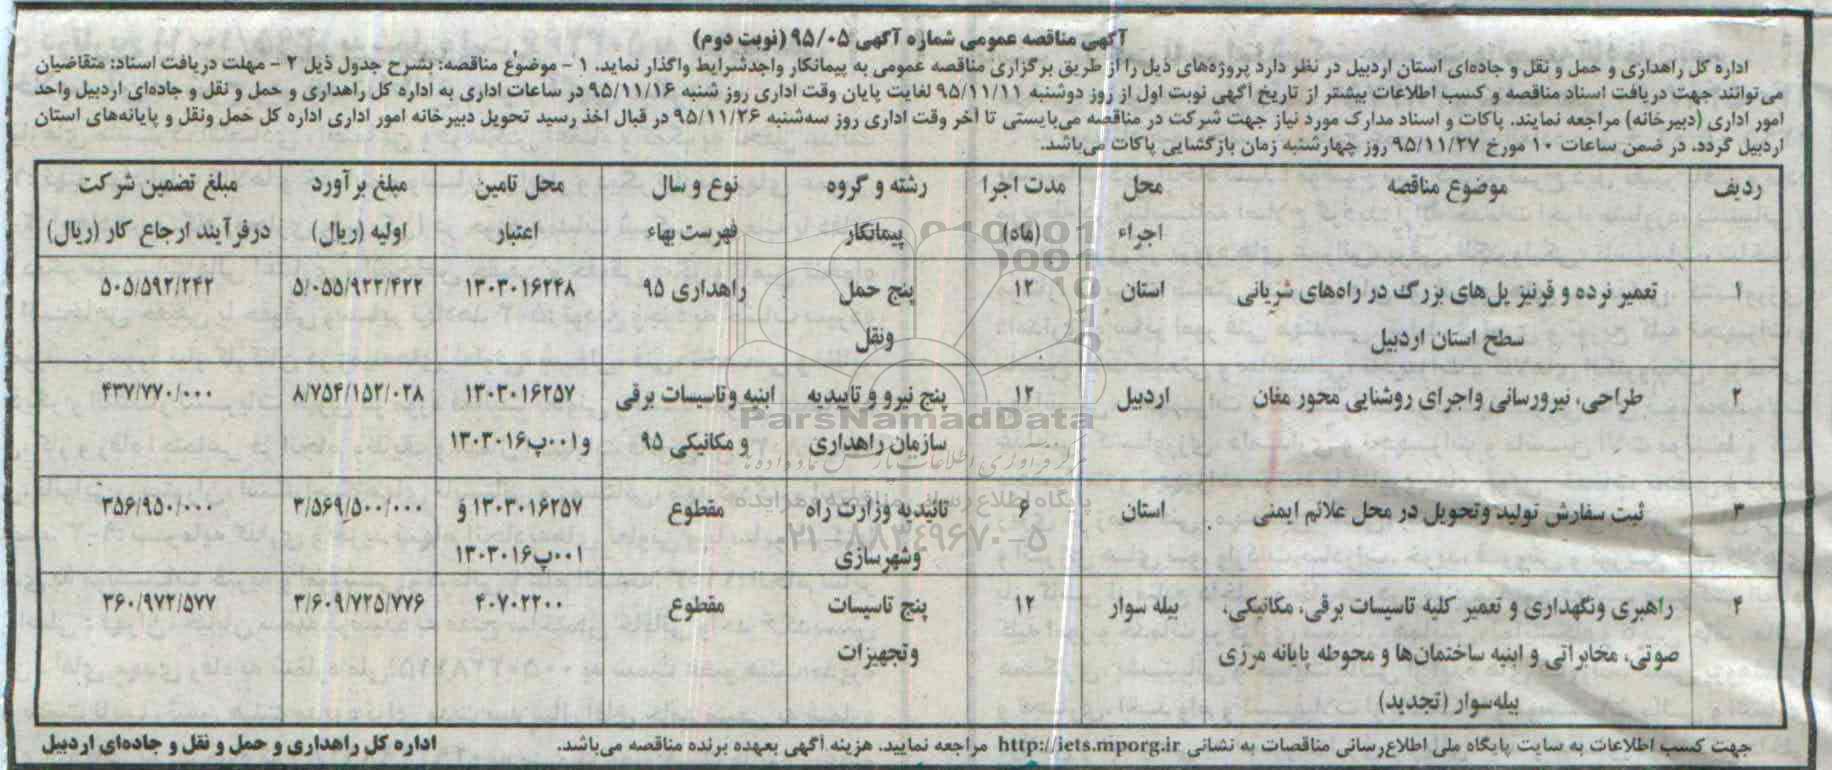 آگهی مناقصه عمومی شماره آگهی ۹۵/۰۵ (نوبت دوم)
اداره کل راهداری و حمل و نقل و جاده‌ای استان اردبیل در نظر دارد پروژه‌های ذیل را از طریق برگزاری مناقصه عمومی به پیمانکار واجدشرایط واگذار نماید. ۱ - موضوع مناقصه: بشرح جدول ذیل ۲ - مهلت دریافت اسناد: متقاضیان
می‌توانند جهت دریافت اسناد مناقصه و کسب اطلاعات بیشتر از تاریخ آگهی نوبت اول از روز دوشنبه ۹۵/۱۱/۱۱ لغایت پایان وقت اداری روز شنبه ۹۵/۱۱/۱۶ در ساعات اداری به اداره کل راهداری و حمل و نقل و جاده‌ای اردبیل واحد
امور اداری (دبیرخانه) مراجعه نمایند. پاکات و اسناد مدارک مورد نیاز جهت شرکت در مناقصه می‌بایستی تا آخر وقت اداری روز سه‌شنبه ۹۵/۱۱/۲۶ در قبال اخذ رسید تحویل دبیرخانه امور اداری اداره کل حمل ونقل و پایانه‌های استان
اردبیل گردد. در ضمن ساعات ۱۰ مورخ ۹۵/۱۱/۲۷ روز چهارشنبه زمان بازگشایی پاکات می‌باشد.
ردیف موضوع مناقصه محل مدت اجرا رشته و گروه نوع و سال محل تامین مبلغ برآورد مبلغ تضمین شرکت
اجراء (ماه) پیمانکار فهرست بهاء اعتبار اولیه (ریال) درفرآیند ارجاع کار (ریال)
۱ تعمیر نرده و قرنیز پل‌های بزرگ در راه‌های شریانی استان ۱۲ پنج حمل راهداری ۹۵ ۱۳۰۳۰۱۶۲۴۸ ۵/۰۵۵/۹۲۲/۴۲۲ ۵۰۵/۵۹۲/۲۴۲
سطح استان اردبیل ونقل
۲ طراحی، نیرورسانی واجرای روشنایی محور مغان اردبیل ۱۲ پنج نیرو و تاییدیه ابنیه وتاسیسات برقی ۱۳۰۳۰۱۶۲۵۷ ۸/۷۵۴/۱۵۲/۰۲۸ ۴۳۷/۷۷۰/۰۰۰
سازمان راهداری و مکانیکی ۹۵ و۰۰۱پ۱۳۰۳۰۱۶
۳ ثبت سفارش تولید وتحویل در محل علائم ایمنی استان ۶ تائیدیه وزارت راه مقطوع ۱۳۰۳۰۱۶۲۵۷ و ۳/۵۶۹/۵۰۰/۰۰۰ ۳۵۶/۹۵۰/۰۰۰
وشهرسازی ۰۰۱پ۱۳۰۳۰۱۶
۴ راهبری ونگهداری و تعمیر کلیه تاسیسات برقی، مکانیکی، بیله سوار ۱۲ پنج تاسیسات مقطوع ۴۰۷۰۲۲۰۰ ۳/۶۰۹/۷۲۵/۷۷۶ ۳۶۰/۹۷۲/۵۷۷
صوتی، مخابراتی و ابنیه ساختمان‌ها و محوطه پایانه مرزی وتجهیزات
بیله‌سوار (تجدید)
جهت کسب اطلاعات به سایت پایگاه ملی اطلاع‌رسانی مناقصات به نشانی http://iets.mporg.ir مراجعه نمایید. هزینه آگهی بعهده برنده مناقصه می‌باشد. اداره کل راهداری و حمل و نقل و جاده‌ای اردبیل
ParsNamadData
مرکز فرآوری اطلاعات پارس نماد داده ها
۰۲۱-۸۸۳۴۹۶۷۰-۵